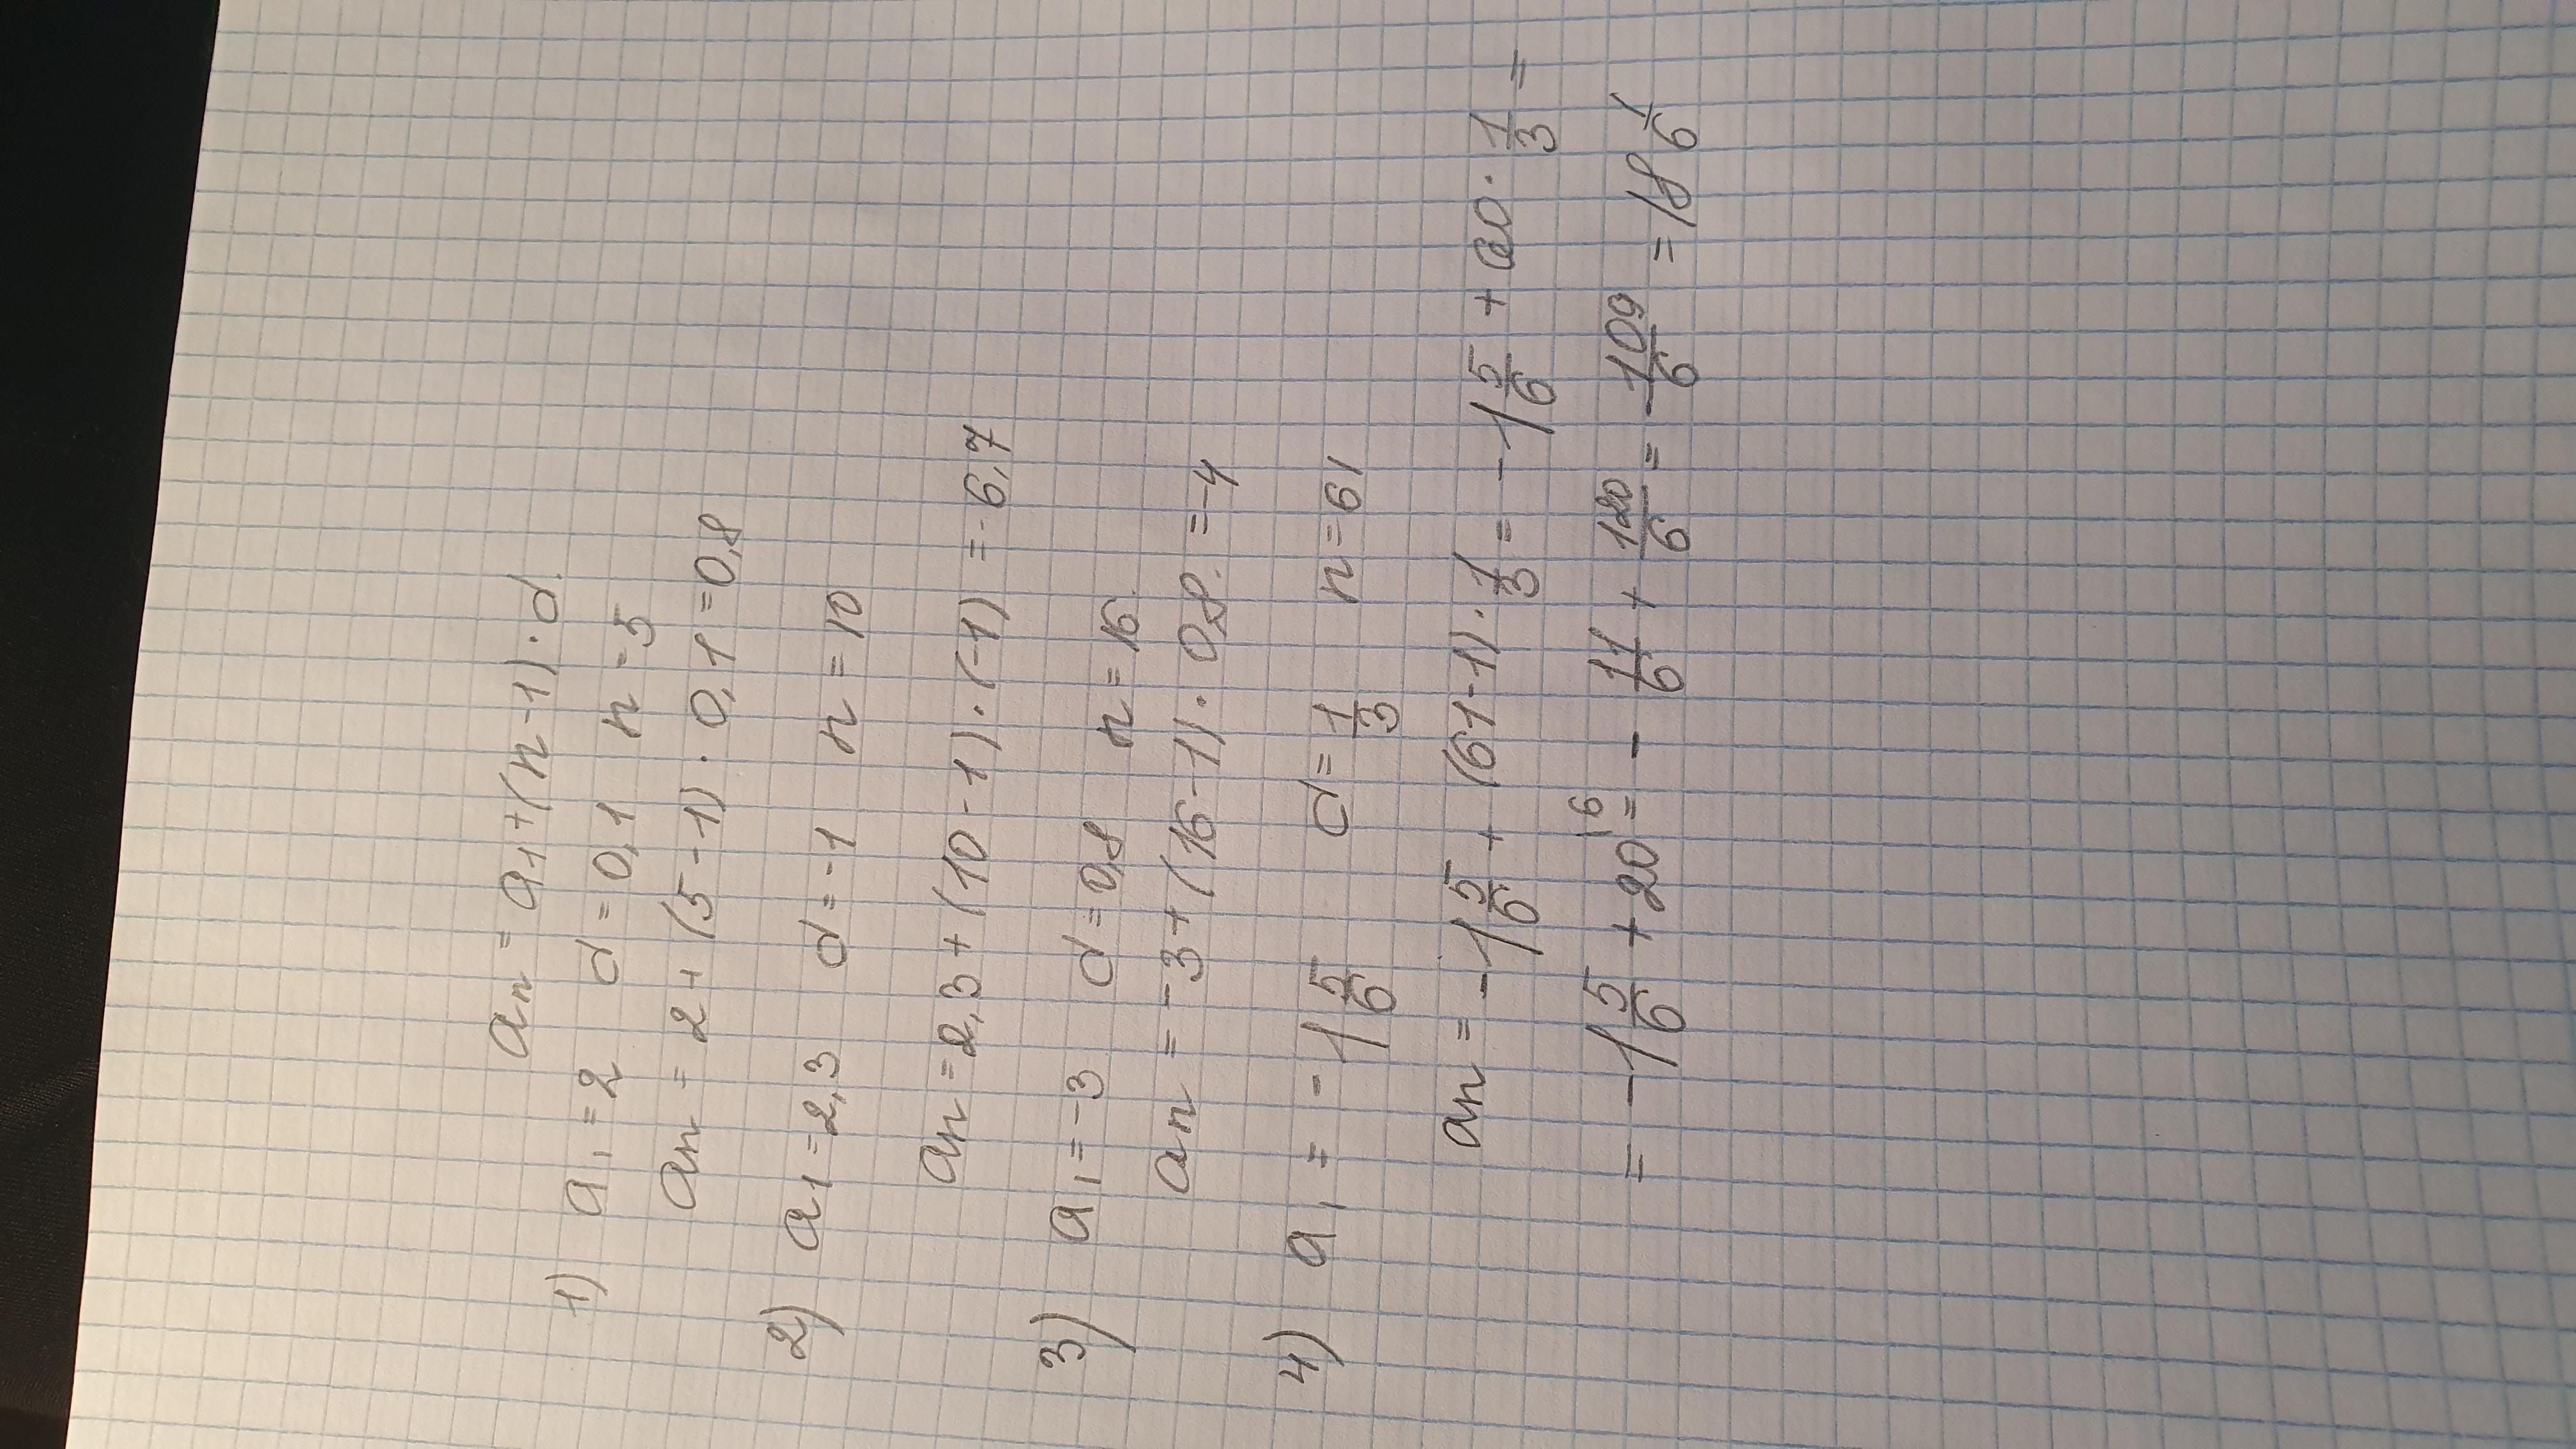 an = a1 + (n - 1) · d.
1) a1 = 2 d = 0,1 n = 5
an = 2 + (5 - 1) · 0,1 = 0,8
2) a1 = 2,3 d = -1 n = 10
an = 2,3 + (10 - 1) · (-1) = -6,7
3) a1 = -3 d = 0,8 n = 16.
an = -3 + (16 - 1) · 0,8. = -4
4) a1 = -1 5/6 d = 1/3 n = 61
an = -1 5/6 + (61 - 1) · 1/3 = -1 5/6 + 20 · 1/3 =
= -1 5/6 + 20 \6 = - 11/6 + 120/6 = - 109/6 = 18 1/6